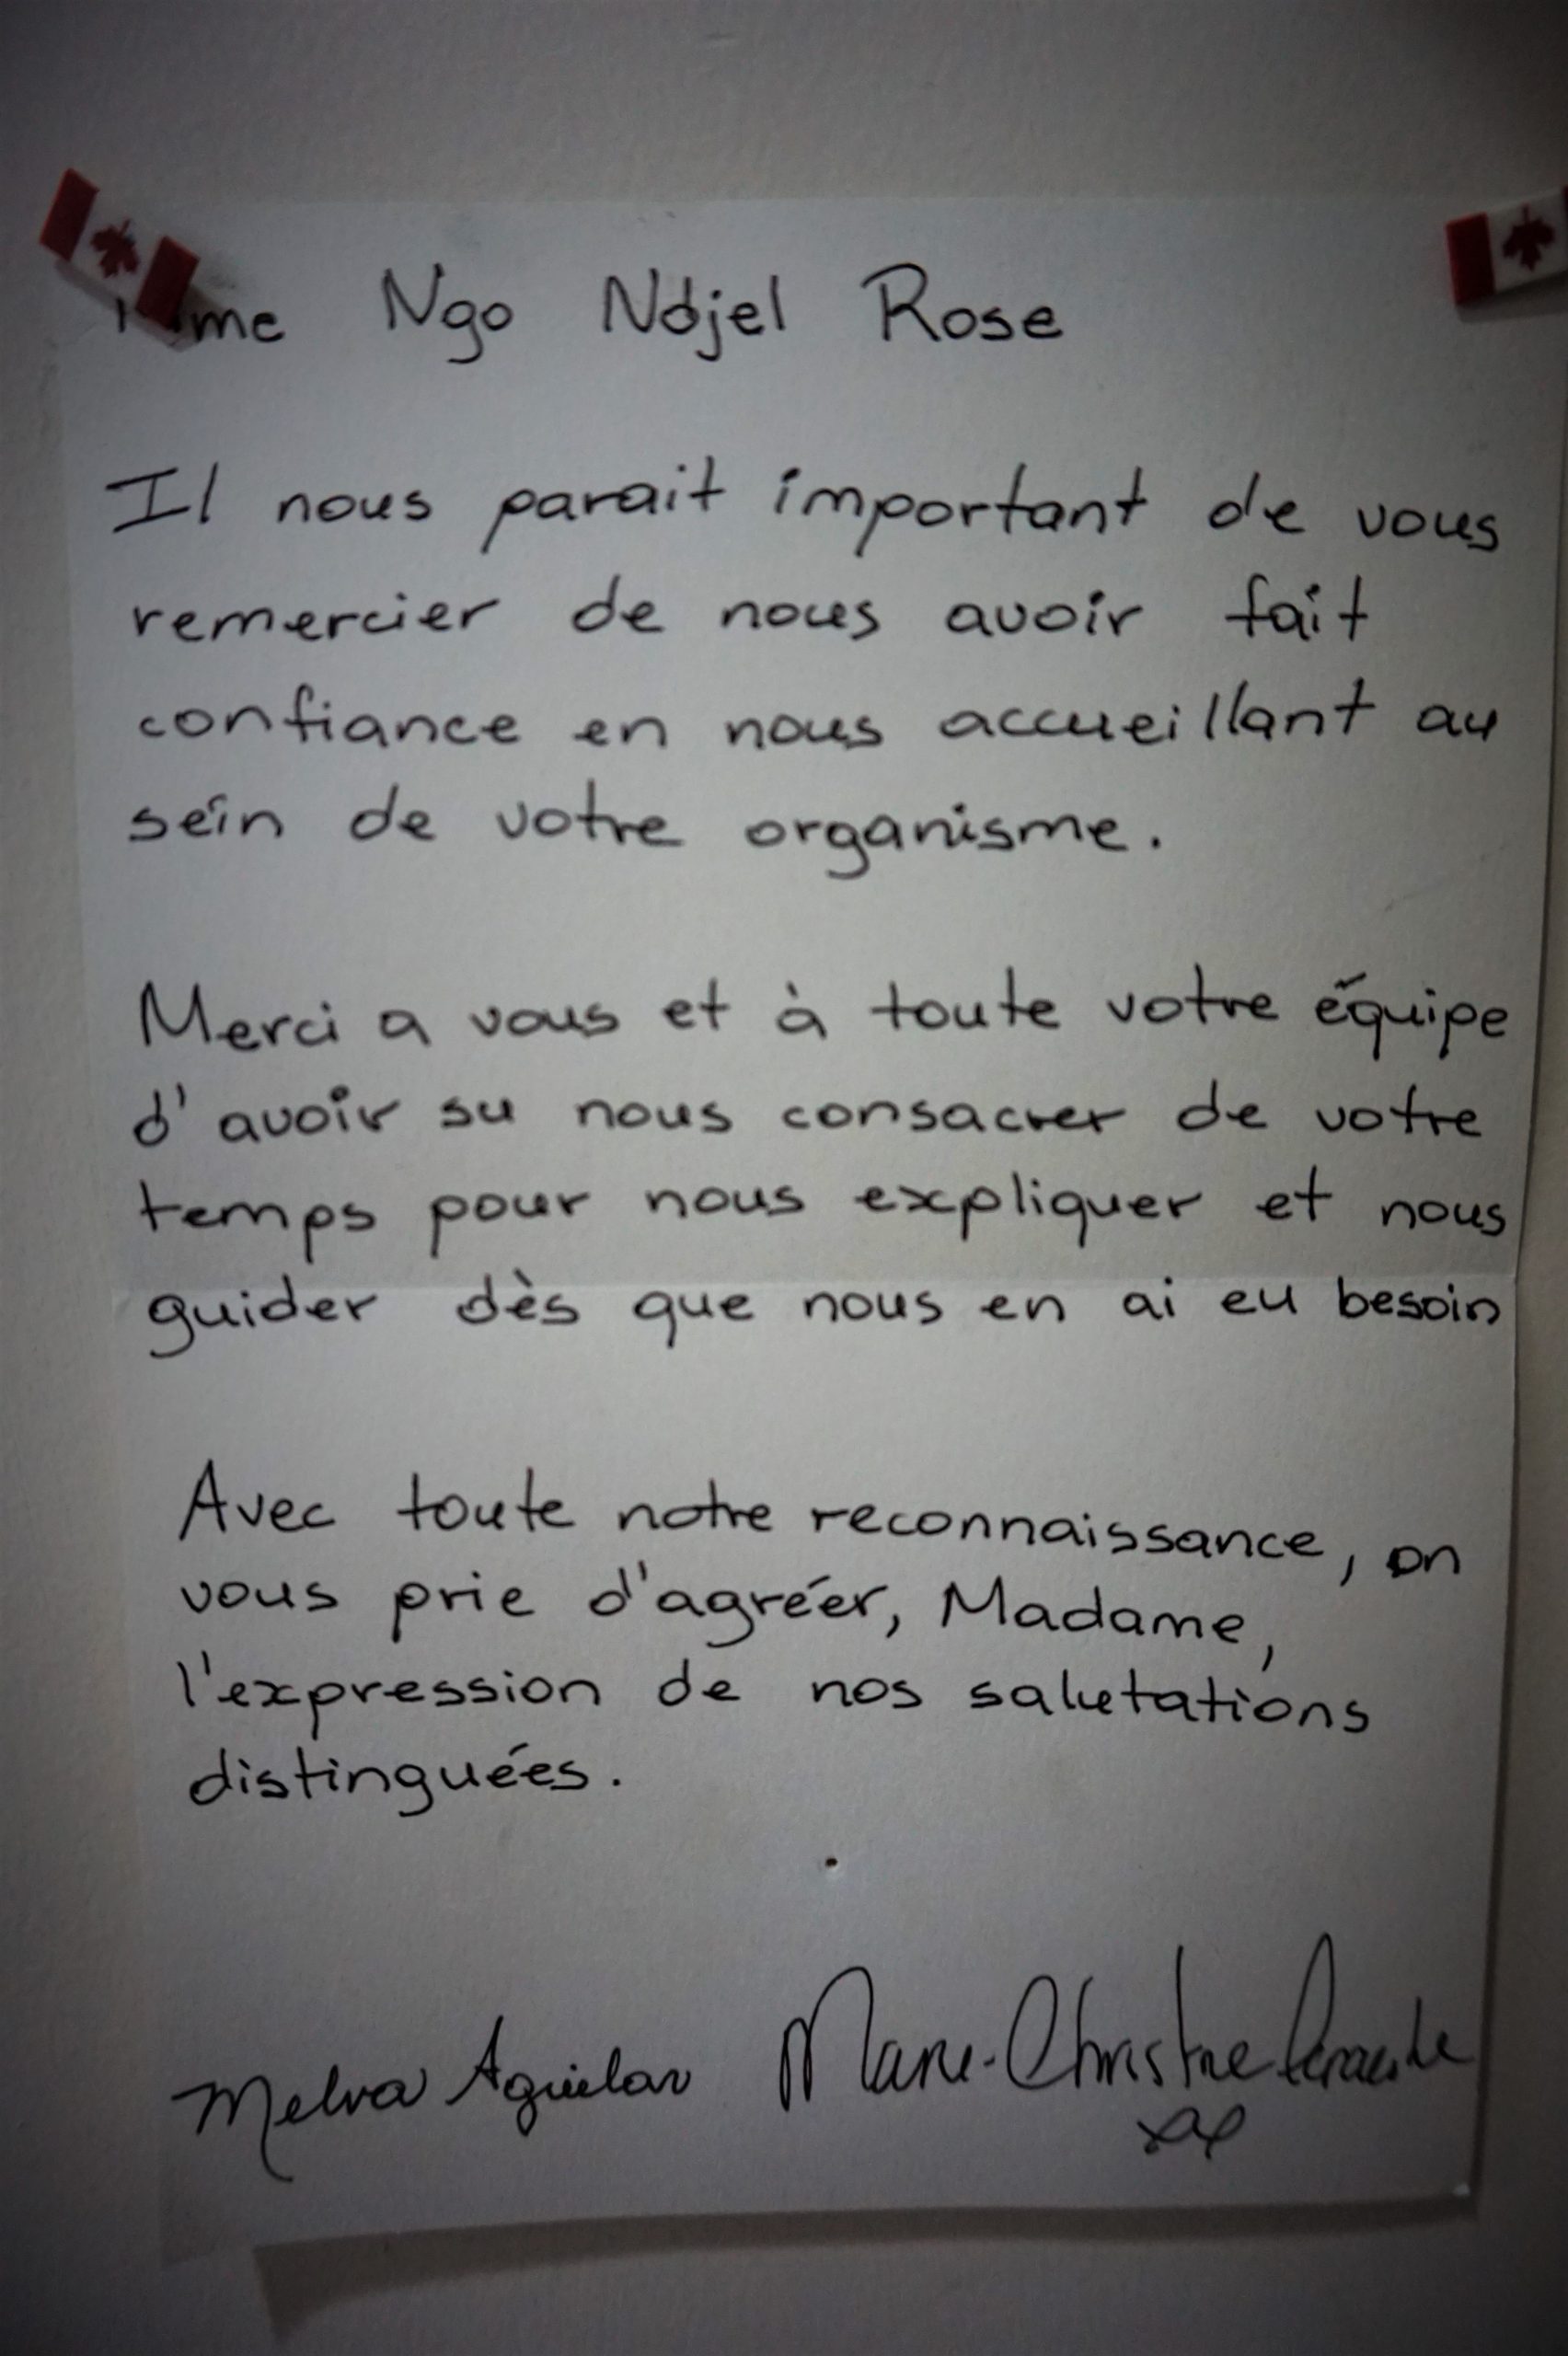 Mme Ngo Ndjel Rose
Il nous parait important de vous
remercier de nous avoir fait
confiance en nous accueillant au
sein de votre organisme.
Merci a vous et à toute votre équipe
d'avoir su nous consacrer de votre
temps pour nous expliquer et nous
guider dès que nous en ai eu besoin
Avec toute notre reconnaissance, on
vous prie d'agréer, Madame,
l'expression de nos salutations
distinguées.
Melva Aguilar Marie-Christine